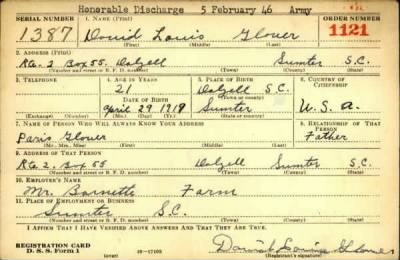 Honorable Discharge 5 February 46 Army
SERIAL NUMBER 1. NAME (Print) ORDER NUMBER
1387 David Louis Glover 1121
(First) (Middle) (Last)
2. ADDRESS (Print)
Rte. 2 Box 55 Dalzell Sumter S.C.
(Number and street or R. F. D. number) (Town) (County) (State)
3. TELEPHONE 4. AGE IN YEARS 5. PLACE OF BIRTH 6. COUNTRY OF CITIZENSHIP
21 Dalzell S.C.
DATE OF BIRTH (Town or county)
April 29, 1919 Sumter U.S.A.
(Exchange) (Number) (Mo.) (Day) (Yr.) (State or country)
7. NAME OF PERSON WHO WILL ALWAYS KNOW YOUR ADDRESS 8. RELATIONSHIP OF THAT PERSON
Paris Glover Father
(Mr., Mrs., Miss) (First) (Middle) (Last)
9. ADDRESS OF THAT PERSON
Rte 2, Box 55 Dalzell Sumter S.C.
(Number and street or R. F. D. number) (Town) (County) (State)
10. EMPLOYER'S NAME
Mr. Barnette Farm
11. PLACE OF EMPLOYMENT OR BUSINESS
Sumter S.C.
(Number and street or R. F. D. number) (Town) (County) (State)
I AFFIRM THAT I HAVE VERIFIED ABOVE ANSWERS AND THAT THEY ARE TRUE.
REGISTRATION CARD
D. S. S. Form 1 16-17105 David Louis Glover